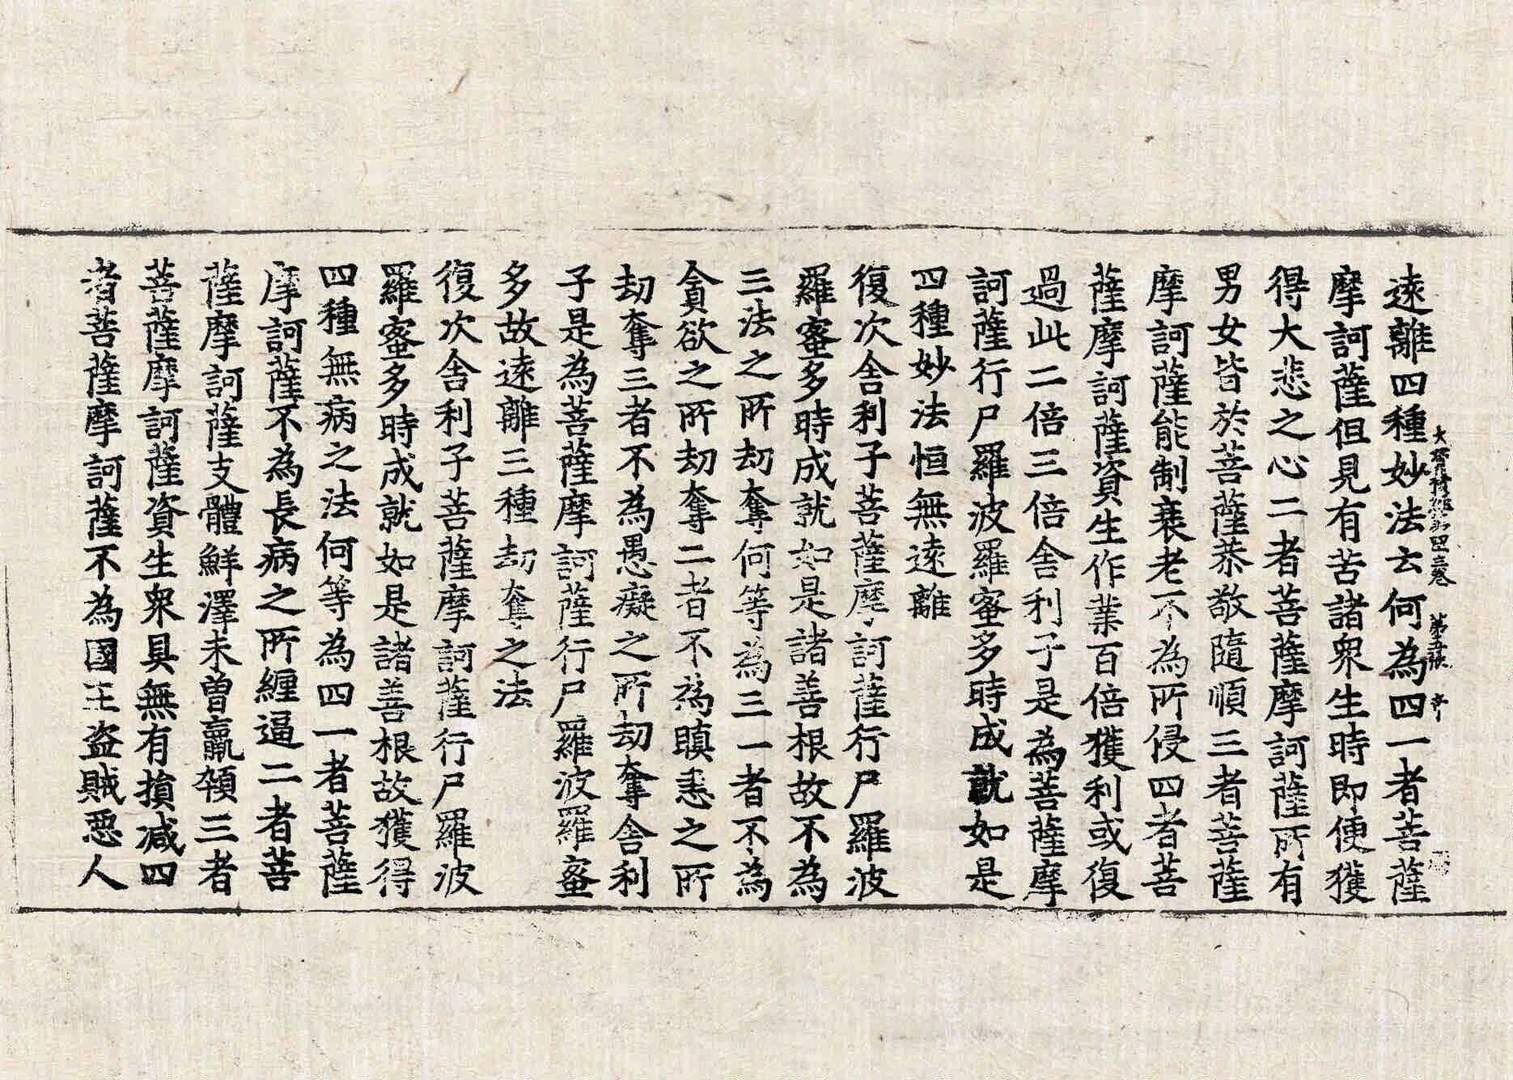 遠離四種妙法云何為四一者菩薩
摩訶薩但見有苦諸衆生時即便獲
得大悲之心二者菩薩摩訶薩所有
男女皆於菩薩恭敬隨順三者菩薩
摩訶薩能制衰老不為所侵四者菩
薩摩訶薩資生作業百倍獲利或復
過此二倍三倍舍利子是為菩薩摩
訶薩行尸羅波羅蜜多時成就如是
四種妙法恒無遠離
復次舍利子菩薩摩訶薩行尸羅波
羅蜜多時成就如是諸善根故不為
三法之所劫奪何等為三一者不為
貪欲之所劫奪二者不為瞋恚之所
劫奪三者不為愚癡之所劫奪舍利
子是為菩薩摩訶薩行尸羅波羅蜜
多故遠離三種劫奪之法
復次舍利子菩薩摩訶薩行尸羅波
羅蜜多時成就如是諸善根故獲得
四種無病之法何等為四一者菩薩
摩訶薩不為長病之所纏逼二者菩
薩摩訶薩支體鮮澤未曽羸頓三者
菩薩摩訶薩資生衆具無有損减四
者菩薩摩訶薩不為國王盗賊惡人